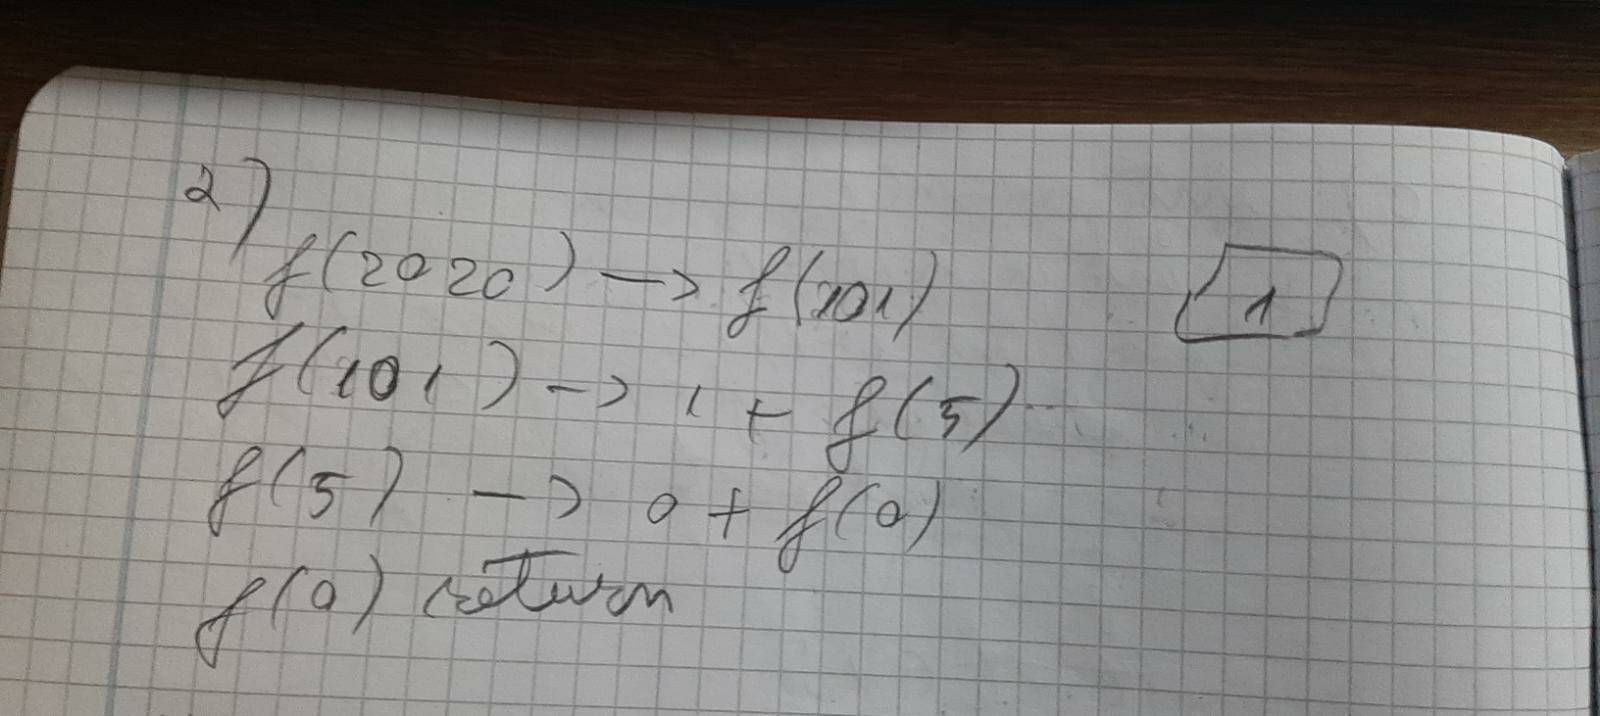 2)
f(2020) -> f(101)
1
f(101) -> 1 + f(5)
f(5) -> 0 + f(0)
f(0) return